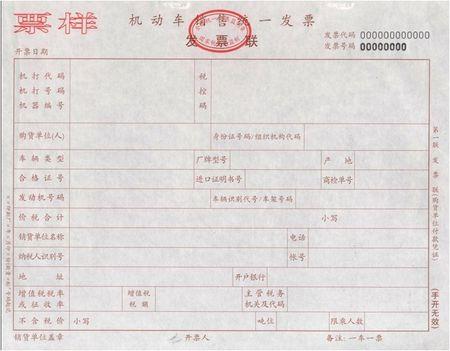 票样 机动车销售统一发票
发票联
发票代码 000000000000
发票号码 00000000
开票日期
机打代码 税控码
机打号码
机器编号
购货单位(人) 身份证号码/组织机构代码
车辆类型 厂牌型号 产地
合格证号 进口证明书号 商检单号
发动机号码 车辆识别代号/车架号码
价税合计 小写
销货单位名称 电话
纳税人识别号 帐号
地址 开户银行
增值税税率或征收率 增值税税额 主管税务机关及代码
不含税价 小写 吨位 限乘人数
销货单位盖章 开票人 备注:一车一票
第一联 发票联(购货单位付款凭证)
(手开无效)